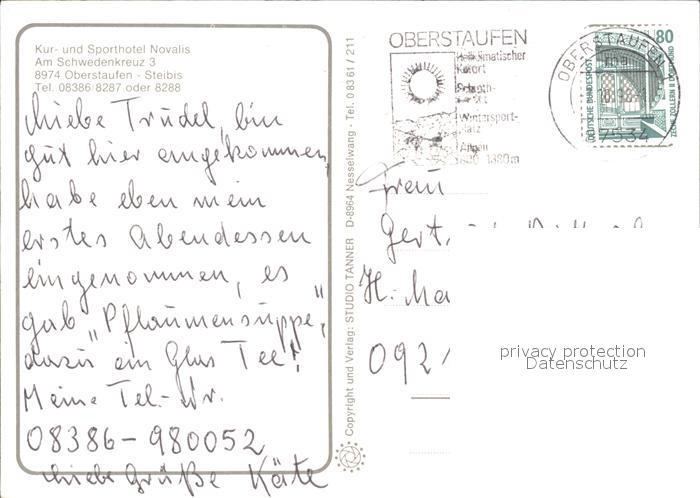 Kur- und Sporthotel Novalis
Am Schwedenkreuz 3
8974 Oberstaufen - Steibis
Tel. 08386 8287 oder 8288
Liebe Trudel, bin
gut hier angekommen,
habe eben mein
erstes Abendessen
eingenommen, es
gab "Pflaumensuppe",
dazu ein Glas Tee!
Meine Tel.-Nr.
08386-980052
Liebe Grüße Käte
Copyright und Verlag: STUDIO TANNER D-8964 Nesselwang - Tel. 08361/211
OBERSTAUFEN
Heilklimatischer
Kurort
Schroth-
Wintersport-
platz
Allgäu
1380m
OBERSTAUFEN
7534
80
DEUTSCHE BUNDESPOST
ZECHE ZOLLERN II DORTMUND
Frau
H.-Ma
privacy protection
Datenschutz